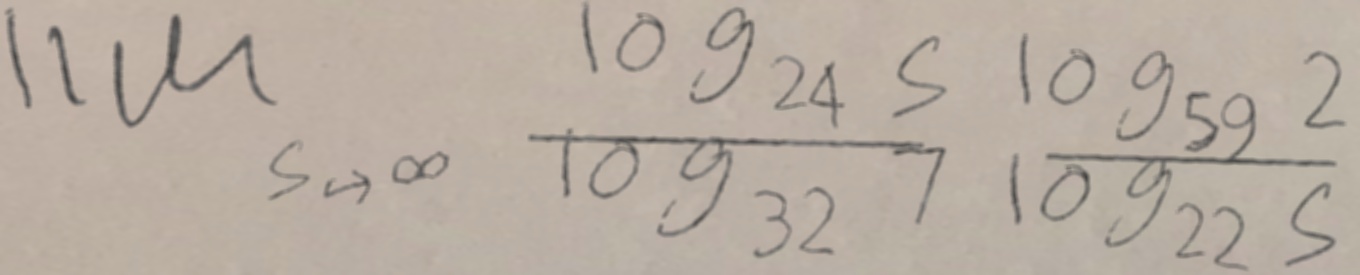 lim_{s→∞} \frac{log_{24} s}{log_{32} 7} \frac{log_{59} 2}{log_{22} s}